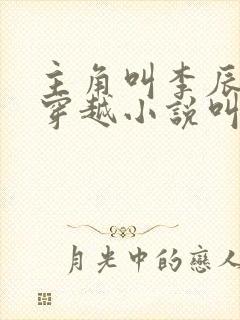 主角叫李辰
穿越小說叫
月光中的戀人